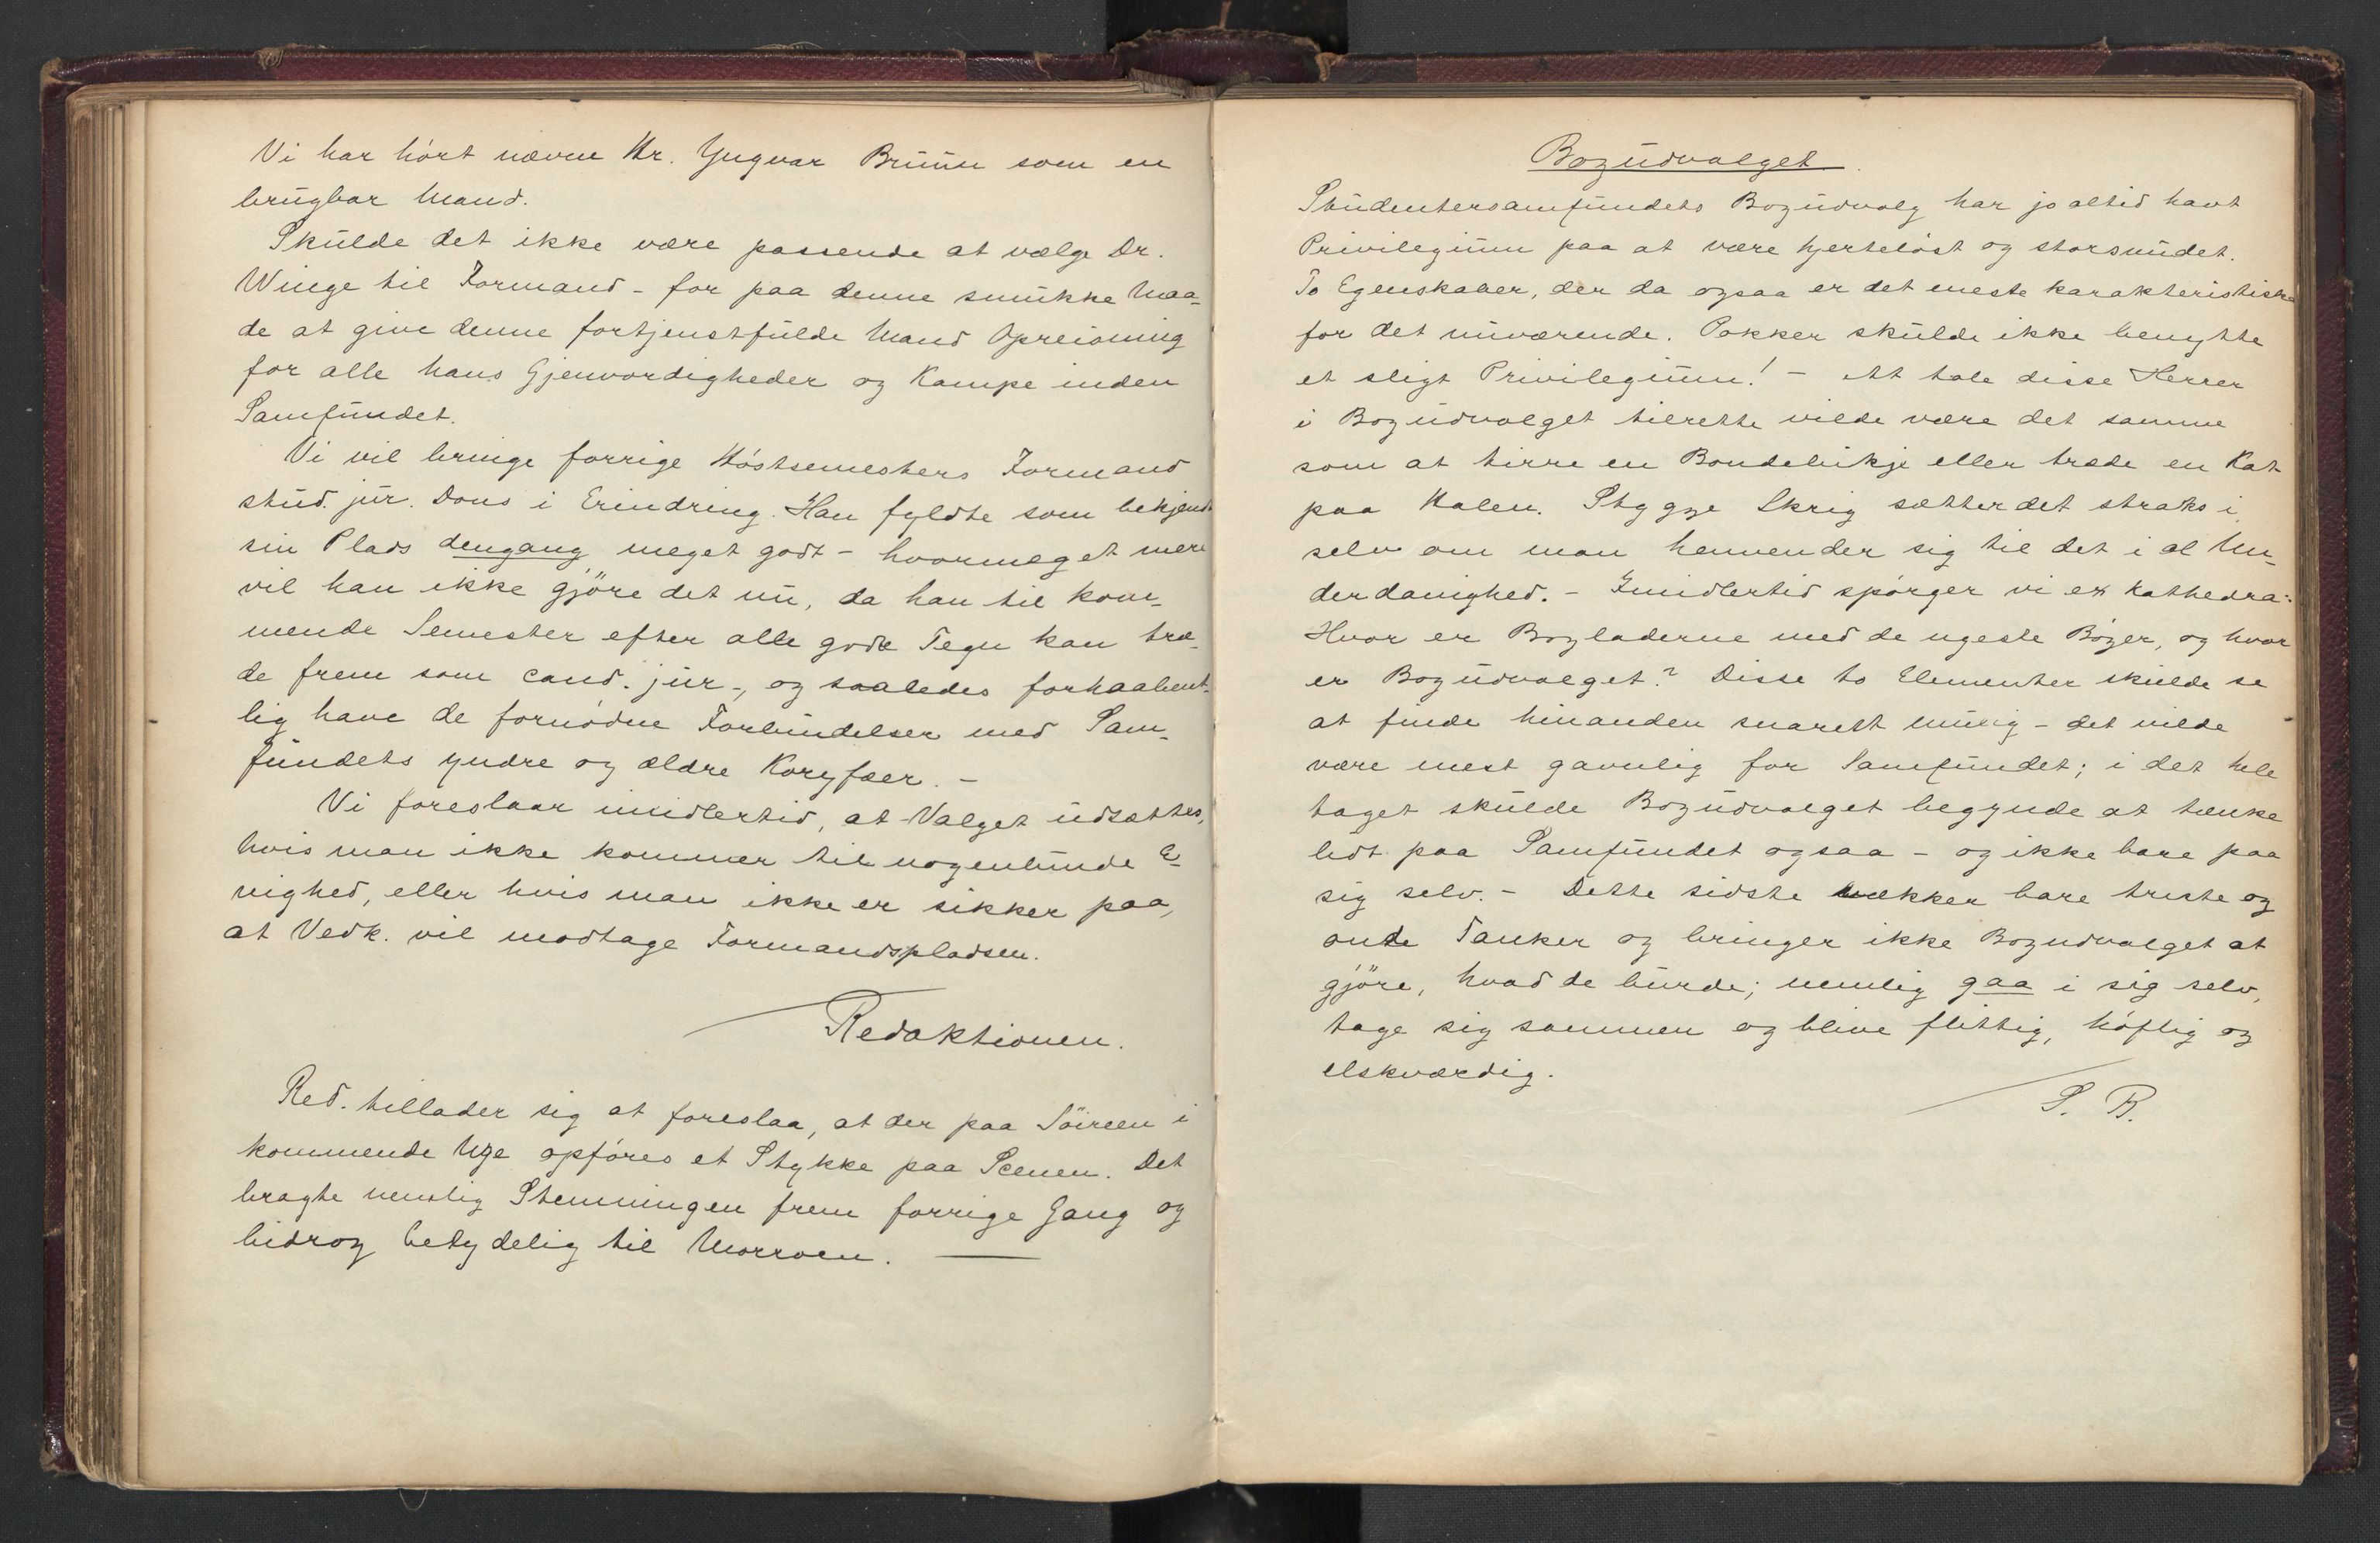 Vi har hørt nævne Hr. Yngvar Bruun som en
brugbar Mand.
Skulde det ikke være passende at vælge Dr.
Winge til Formand - for paa denne smukke Maa-
de at give denne fortjenstfulde Mand Opreisning
for alle hans Gjenvordigheder og Kampe inden
Samfundet.
Vi vil bringe forrige Høstsemesters Formand
stud. jur. Dons i Erindring. Han fyldte som bekjendt
sin Plads dengang meget godt - hvormeget mere
vil han ikke gjøre det nu, da han til kom-
mende Semester efter alle gode Tegn kan træ-
de frem som cand. jur., og saaledes forhaabent-
lig have de fornødne Forbindelser med Sam-
fundets yndre og ældre Koryfæer. -
Vi foreslaar imidlertid, at Valget udsættes,
hvis man ikke kommer til nogenlunde E-
nighed, eller hvis man ikke er sikker paa,
at Vedk. vil modtage Formandspladsen.
Redaktionen.
Red. tillader sig at foreslaa, at der paa Söireen i
kommende Uge opføres et Stykke paa Scenen. Det
bragte nemlig Stemningen frem forrige Gang og
bidrog betydelig til Morroen. —
Bogudvalget.
Studentersamfundets Bogudvalg har jo altid havt
Privilegium paa at være hjerteløst og storsnudet.
To Egenskaber, der da ogsaa er det meste karakteristiske
for det nuværende. Pokker skulde ikke benytte
et sligt Privilegium! - At tale disse Herrer
i Bogudvalget tilrette vilde være det samme
som at tirre en Bondebikje eller træde en Kat
paa Halen. Stygge Skrig sætter det straks i,
selv om man henvender sig til det i al Un-
derdanighed. - Imidlertid spørger vi ex kathedra:
Hvor er Bogladerne med de ugeste Bøger, og hvor
er Bogudvalget? Disse to Elementer skulde se
at finde hinanden snarest mulig - det vilde
være mest gavnlig for Samfundet; i det hele
taget skulde Bogudvalget begynde at tænke
lidt paa Samfundet ogsaa - og ikke bare paa
sig selv. - Dette sidste vækker bare triste og
onde Tanker og bringer ikke Bogudvalget at
gjöre, hvad de burde; nemlig gaa i sig selv,
tage sig sammen og blive flittig, höflig og
elskværdig.
S. B.